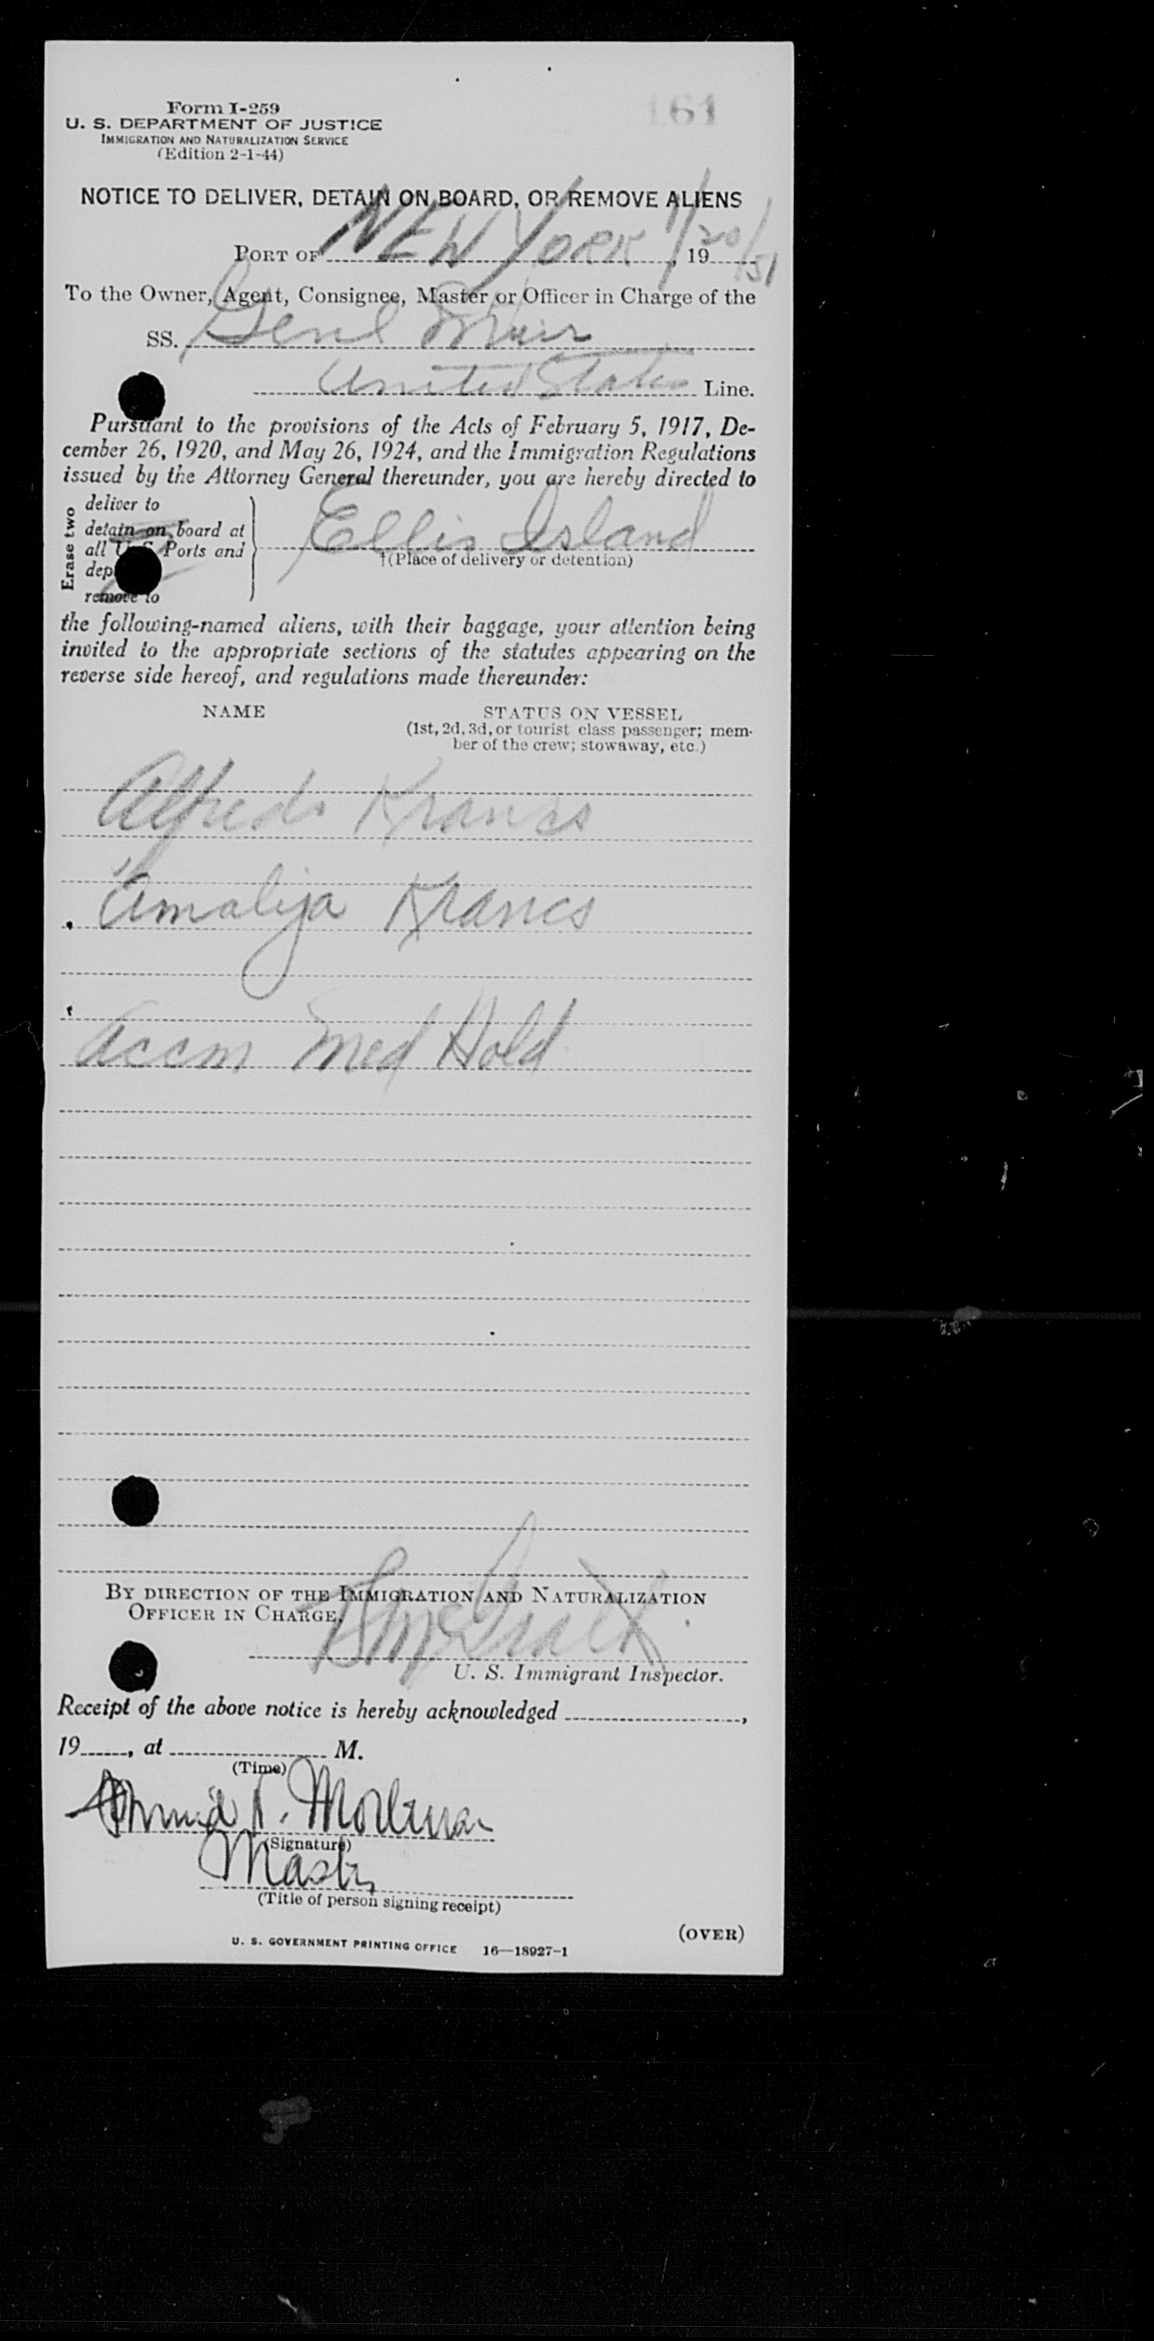 161
Form I-259
U. S. DEPARTMENT OF JUSTICE
IMMIGRATION AND NATURALIZATION SERVICE
(Edition 2-1-44)
NOTICE TO DELIVER, DETAIN ON BOARD, OR REMOVE ALIENS
PORT OF NEW YORK 1/20/51, 19
To the Owner, Agent, Consignee, Master or Officer in Charge of the
SS. Genl Muir
United States Line.
Pursuant to the provisions of the Acts of February 5, 1917, De-
cember 26, 1920, and May 26, 1924, and the Immigration Regulations
issued by the Attorney General thereunder, you are hereby directed to
Erase two
deliver to
detain on board at
all U. S. Ports and
dep
remove to
Ellis Island
†(Place of delivery or detention)
the following-named aliens, with their baggage, your attention being
invited to the appropriate sections of the statutes appearing on the
reverse side hereof, and regulations made thereunder:
NAME STATUS ON VESSEL
(1st, 2d, 3d, or tourist class passenger; mem-
ber of the crew; stowaway, etc.)
Alfreds Krancs
Amalija Krancs
Accm Med Hold
BY DIRECTION OF THE IMMIGRATION AND NATURALIZATION
OFFICER IN CHARGE.
U. S. Immigrant Inspector.
Receipt of the above notice is hereby acknowledged ,
19 , at M.
(Time)
(Signature)
Master
(Title of person signing receipt)
(OVER)
U. S. GOVERNMENT PRINTING OFFICE 16—18927-1